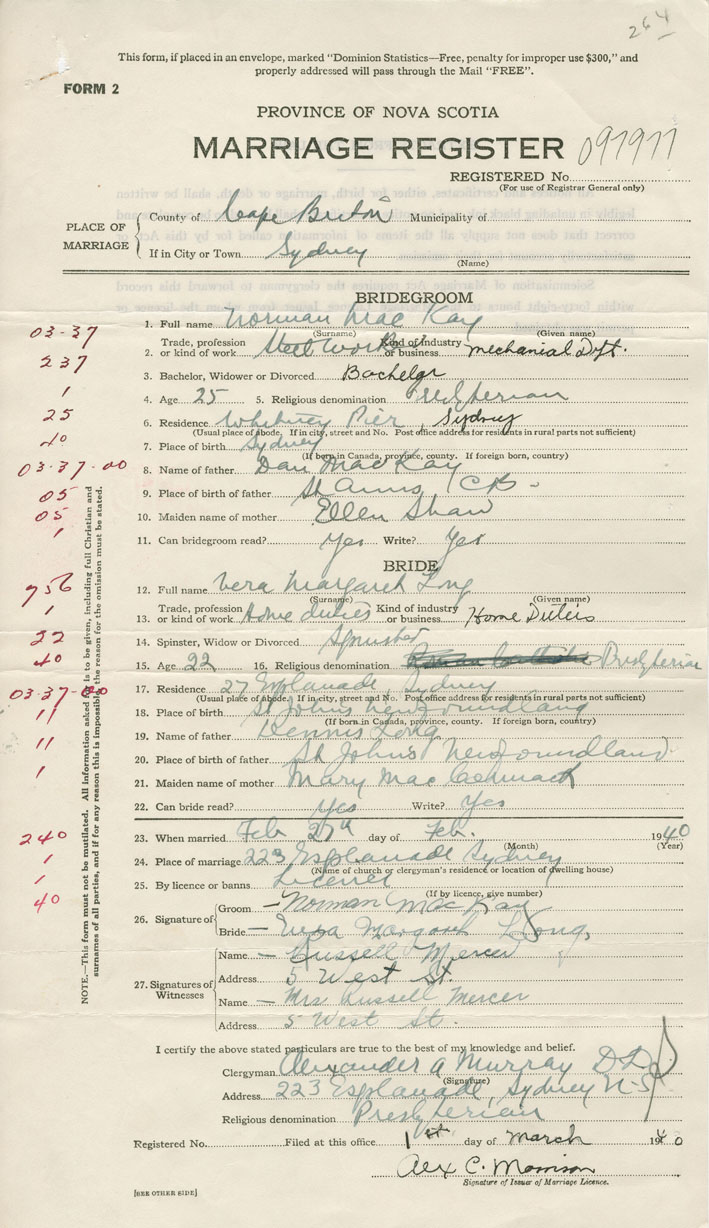 264
This form, if placed in an envelope, marked "Dominion Statistics—Free, penalty for improper use $300," and
properly addressed will pass through the Mail "FREE".
FORM 2
PROVINCE OF NOVA SCOTIA
MARRIAGE REGISTER 097977
REGISTERED No.
(For use of Registrar General only)
PLACE OF MARRIAGE
County of Cape Breton Municipality of
If in City or Town Sydney
(Name)
BRIDEGROOM
03-37
1. Full name Norman Mac Kay
(Surname) (Given name)
237
2. Trade, profession or kind of work Steel Worker Kind of industry or business mechanial Dpt.
1
3. Bachelor, Widower or Divorced Bachelor
25
4. Age 25 5. Religious denomination
40
6. Residence Whitney Pier, Sydney
(Usual place of abode. If in city, street and No. Post office address for residents in rural parts not sufficient)
03-37-00
7. Place of birth Sydney
(If born in Canada, province, county. If foreign born, country)
8. Name of father Dan Mac Kay
05
9. Place of birth of father St Anns CB
05
10. Maiden name of mother Ellen Shaw
1
11. Can bridegroom read? Yes Write? Yes
BRIDE
756
12. Full name Vera Margaret Long
(Surname) (Given name)
1
13. Trade, profession or kind of work Home duties Kind of industry or business Home Duties
22
14. Spinster, Widow or Divorced Spinster
40
15. Age 22 16. Religious denomination Presbyterian
03-37-00
17. Residence 27 Esplanade, Sydney
(Usual place of abode. If in city, street and No. Post office address for residents in rural parts not sufficient)
11
18. Place of birth St Johns Newfoundland
(If born in Canada, province, county. If foreign born, country)
19. Name of father Dennis Long
11
20. Place of birth of father St Johns Newfoundland
1
21. Maiden name of mother Mary Mac Cormack
22. Can bride read? Yes Write? Yes
240
23. When married Feb 27th day of Feb. 1940
(Month) (Year)
1
24. Place of marriage 223 Esplanade Sydney
(Name of church or clergyman's residence or location of dwelling house)
1
25. By licence or banns License
(If by licence, give number)
40
26. Signature of
Groom — Norman MacKay
Bride — Margaret Long
27. Signatures of Witnesses
Name — Russell Mercer
Address 5 West St.
Name — Mrs Russell Mercer
Address 5 West St.
NOTE.—This form must not be mutilated. All information asked is to be given, including full Christian and
surnames of all parties, and if for any reason this is impossible the reason for the omission must be stated.
I certify the above stated particulars are true to the best of my knowledge and belief.
Clergyman Alexander A Murray
(Signature)
Address 223 Esplanade, Sydney N-S
Religious denomination Presbyterian
Registered No. Filed at this office 1st day of March 1940
Alex C. Morrison
Signature of Issuer of Marriage Licence.
[SEE OTHER SIDE]